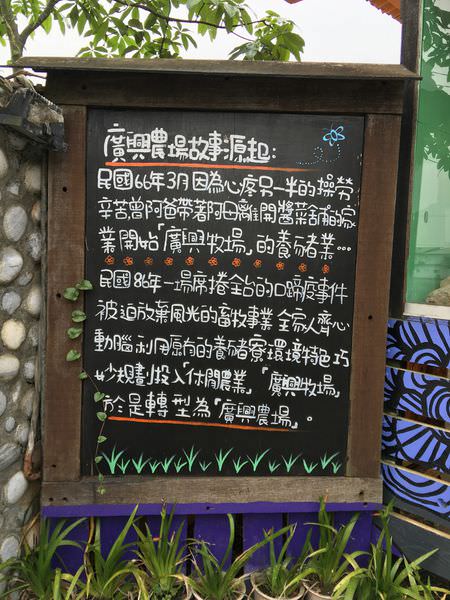 廣興農場故事源起：
民國66年3月因為心疼另一半的操勞
辛苦曾阿爸帶著阿田離開醬菜舖的家
業開始「廣興牧場」的養豬業…
民國86年一場席捲全台的口蹄疫事件
被迫放棄風光的畜牧事業 全家人齊心
動腦 利用原有的養豬寮環境特色巧
妙規劃投入「休閒農業」「廣興牧場」
於是轉型為「廣興農場」。